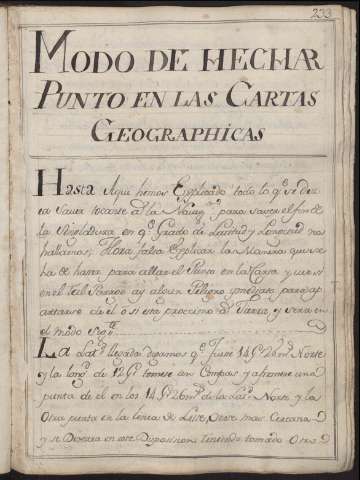 233
MODO DE HECHAR
PUNTO EN LAS CARTAS
GEOGRAPHICAS
Hasta Aqui hemos Expplicado todo lo q.e se dese
ea Saver tocante a la Naveg.n para saver el fin de
la Singladura, en q.e Grado de Latitud y Longitud nos
hallamos; Hora falta Expplicar la Manera que se
ha de hacer para allar el Punto en la Carta y ver si
en el tal Parage ay algun Peligro para ap
artarse de el o si esta proccimo a Tierra, y sera en
el modo Sig.te
La Lat.d llegada digamos q.e fuese 14 G.s 26 m.s Norte
y la long.d de 12 G.s tomese un Compas y ponese una
punta de el en los 14 G.s 26 m.s de la Lat.d Norte y la
Otra punta en la linea de Leste, Oeste mas Cercana
y se Dejara en este Disposicion teniendo tomado Otro